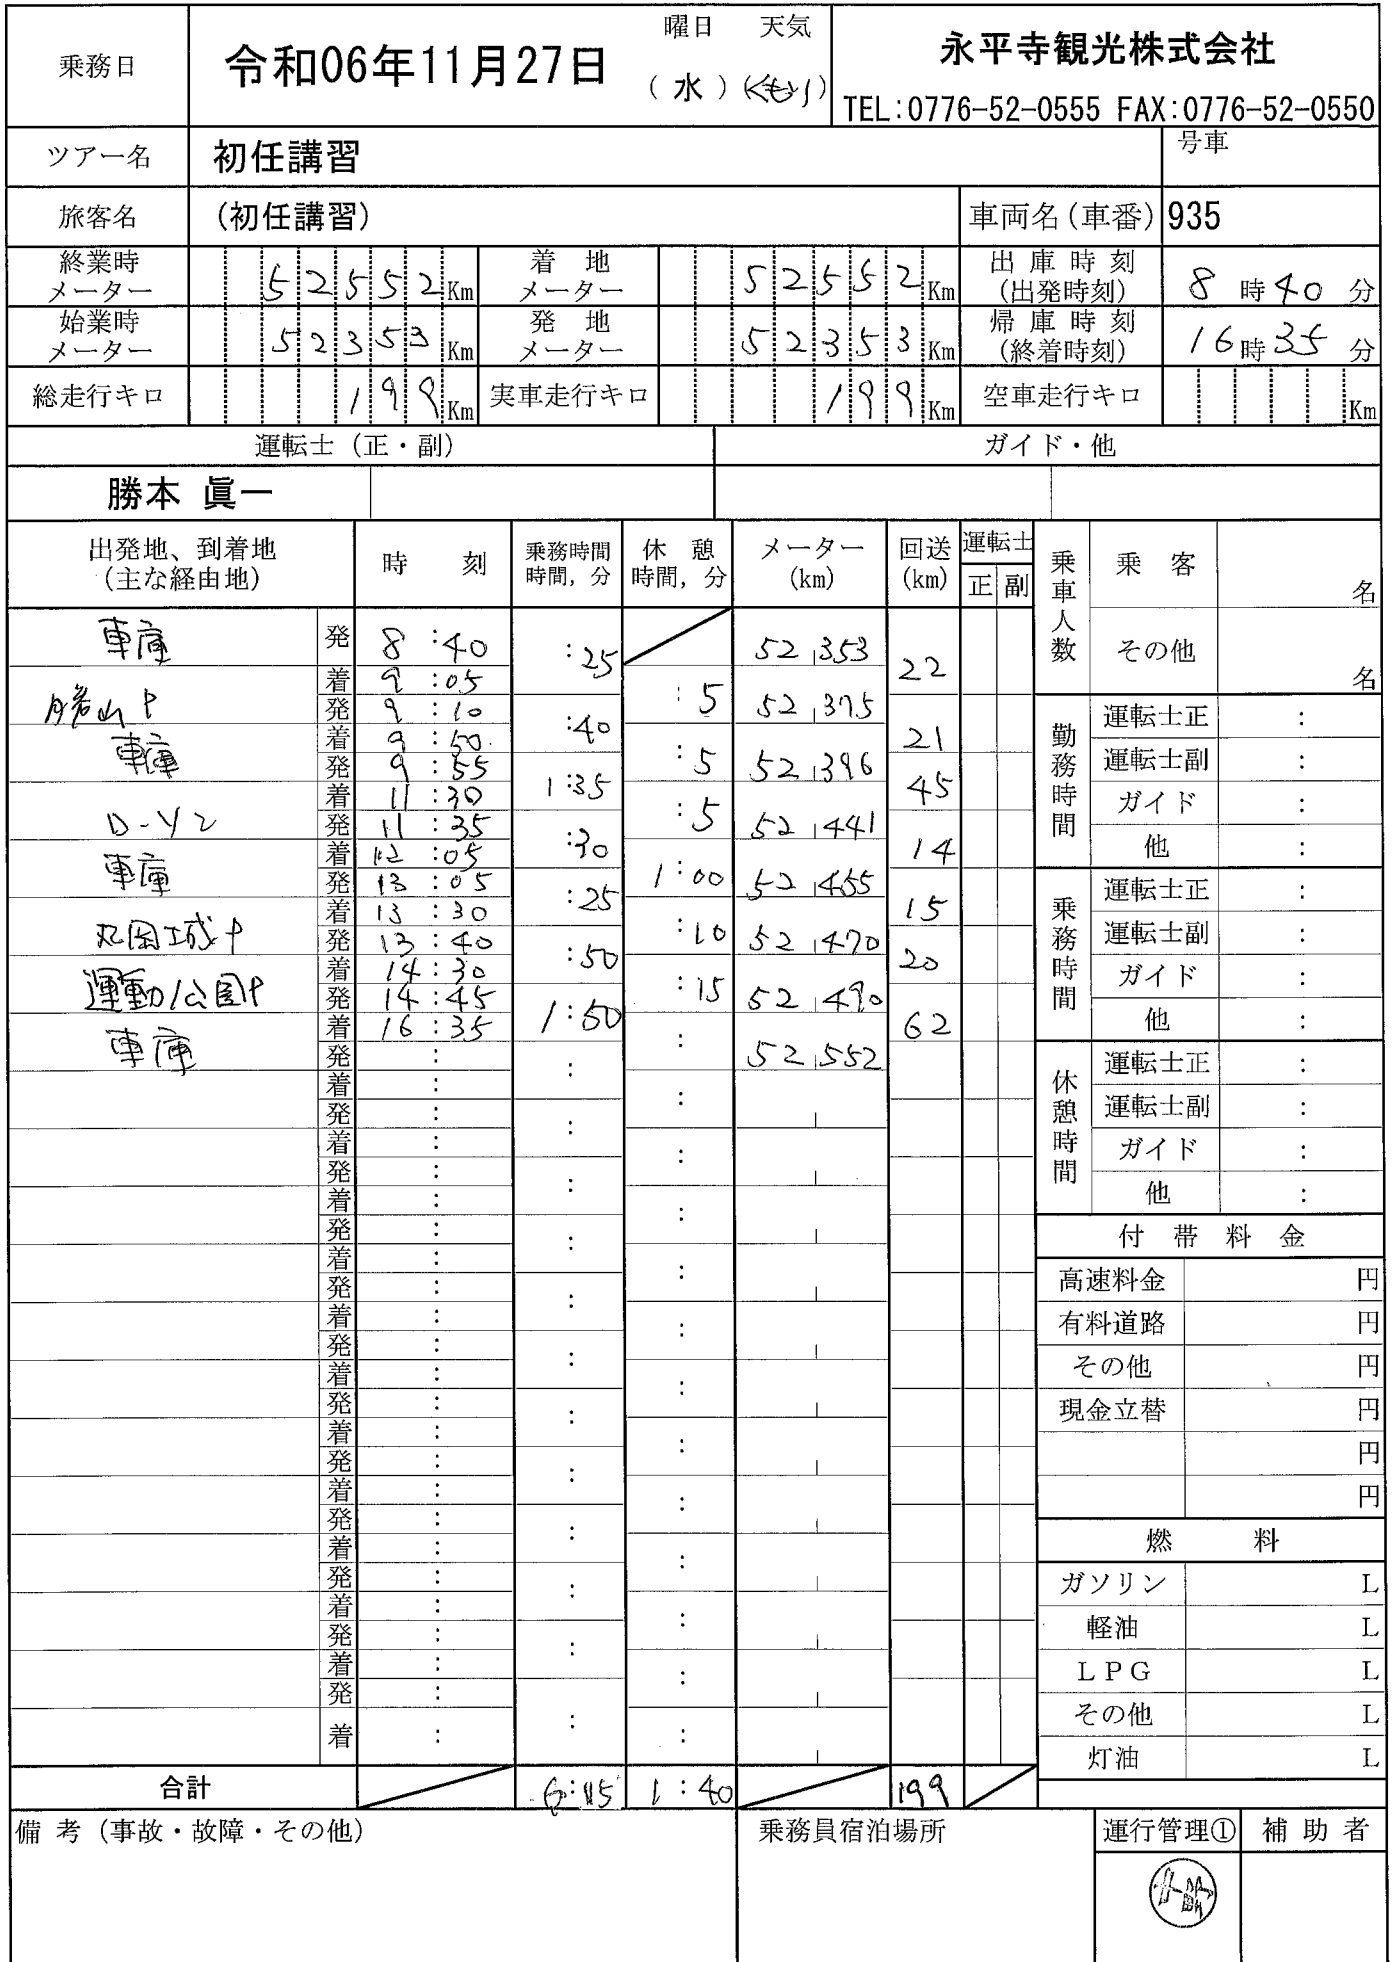 乗務日 令和06年11月27日 曜日 天気 (水) (くもり) 永平寺観光株式会社
TEL:0776-52-0555 FAX:0776-52-0550
ツアー名 初任講習 号車
旅客名 (初任講習) 車両名(車番) 935
終業時メーター 52552Km 着地メーター 52552Km 出庫時刻(出発時刻) 8時40分
始業時メーター 52353Km 発地メーター 52353Km 帰庫時刻(終着時刻) 16時35分
総走行キロ 199Km 実車走行キロ 199Km 空車走行キロ Km
運転士(正・副) ガイド・他
勝本 眞一
出発地、到着地(主な経由地) 時刻 乗務時間 時間,分 休憩 時間,分 メーター(km) 回送(km) 運転士 正 副
車庫 発 8:40 :25 52,353 22
着 9:05
勝山P 発 9:10 :40 :5 52,375 21
着 9:50
車庫 発 9:55 1:35 :5 52,396 45
着 11:30
発 11:35 :30 :5 52,441 14
着 12:05
車庫 発 13:05 :25 1:00 52,455 15
着 13:30
丸岡城P 発 13:40 :50 :10 52,470 20
着 14:30
運動公園P 発 14:45 1:50 :15 52,490 62
着 16:35
車庫 発 : 52,552
合計 6:15 1:40 199
乗車人数 乗客 名
その他 名
勤務時間 運転士正 :
運転士副 :
ガイド :
他 :
乗務時間 運転士正 :
運転士副 :
ガイド :
他 :
休憩時間 運転士正 :
運転士副 :
ガイド :
他 :
付帯料金
高速料金 円
有料道路 円
その他 円
現金立替 円
円
円
燃料
ガソリン L
軽油 L
LPG L
その他 L
灯油 L
備考(事故・故障・その他) 乗務員宿泊場所 運行管理① 補助者